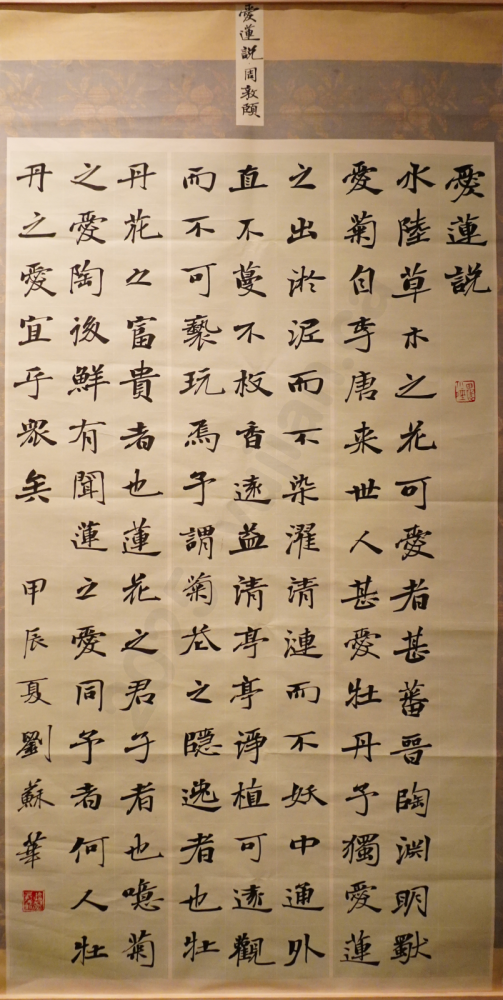 愛蓮説周敦頤
愛蓮説
水陸草木之花可愛者甚蕃晉陶淵明
愛菊自李唐来世人甚愛牡丹予獨愛蓮
之出淤泥而不染濯清漣而不妖中通外
直不蔓不枝香遠益清亭亭淨植可遠觀
而不可褻玩焉予謂菊花之隱逸者也牡
丹花之富貴者也蓮花之君子者也噫菊
之愛陶後鮮有聞蓮之愛同予者何人牡
丹之愛宜乎眾矣 甲辰夏劉蘇華